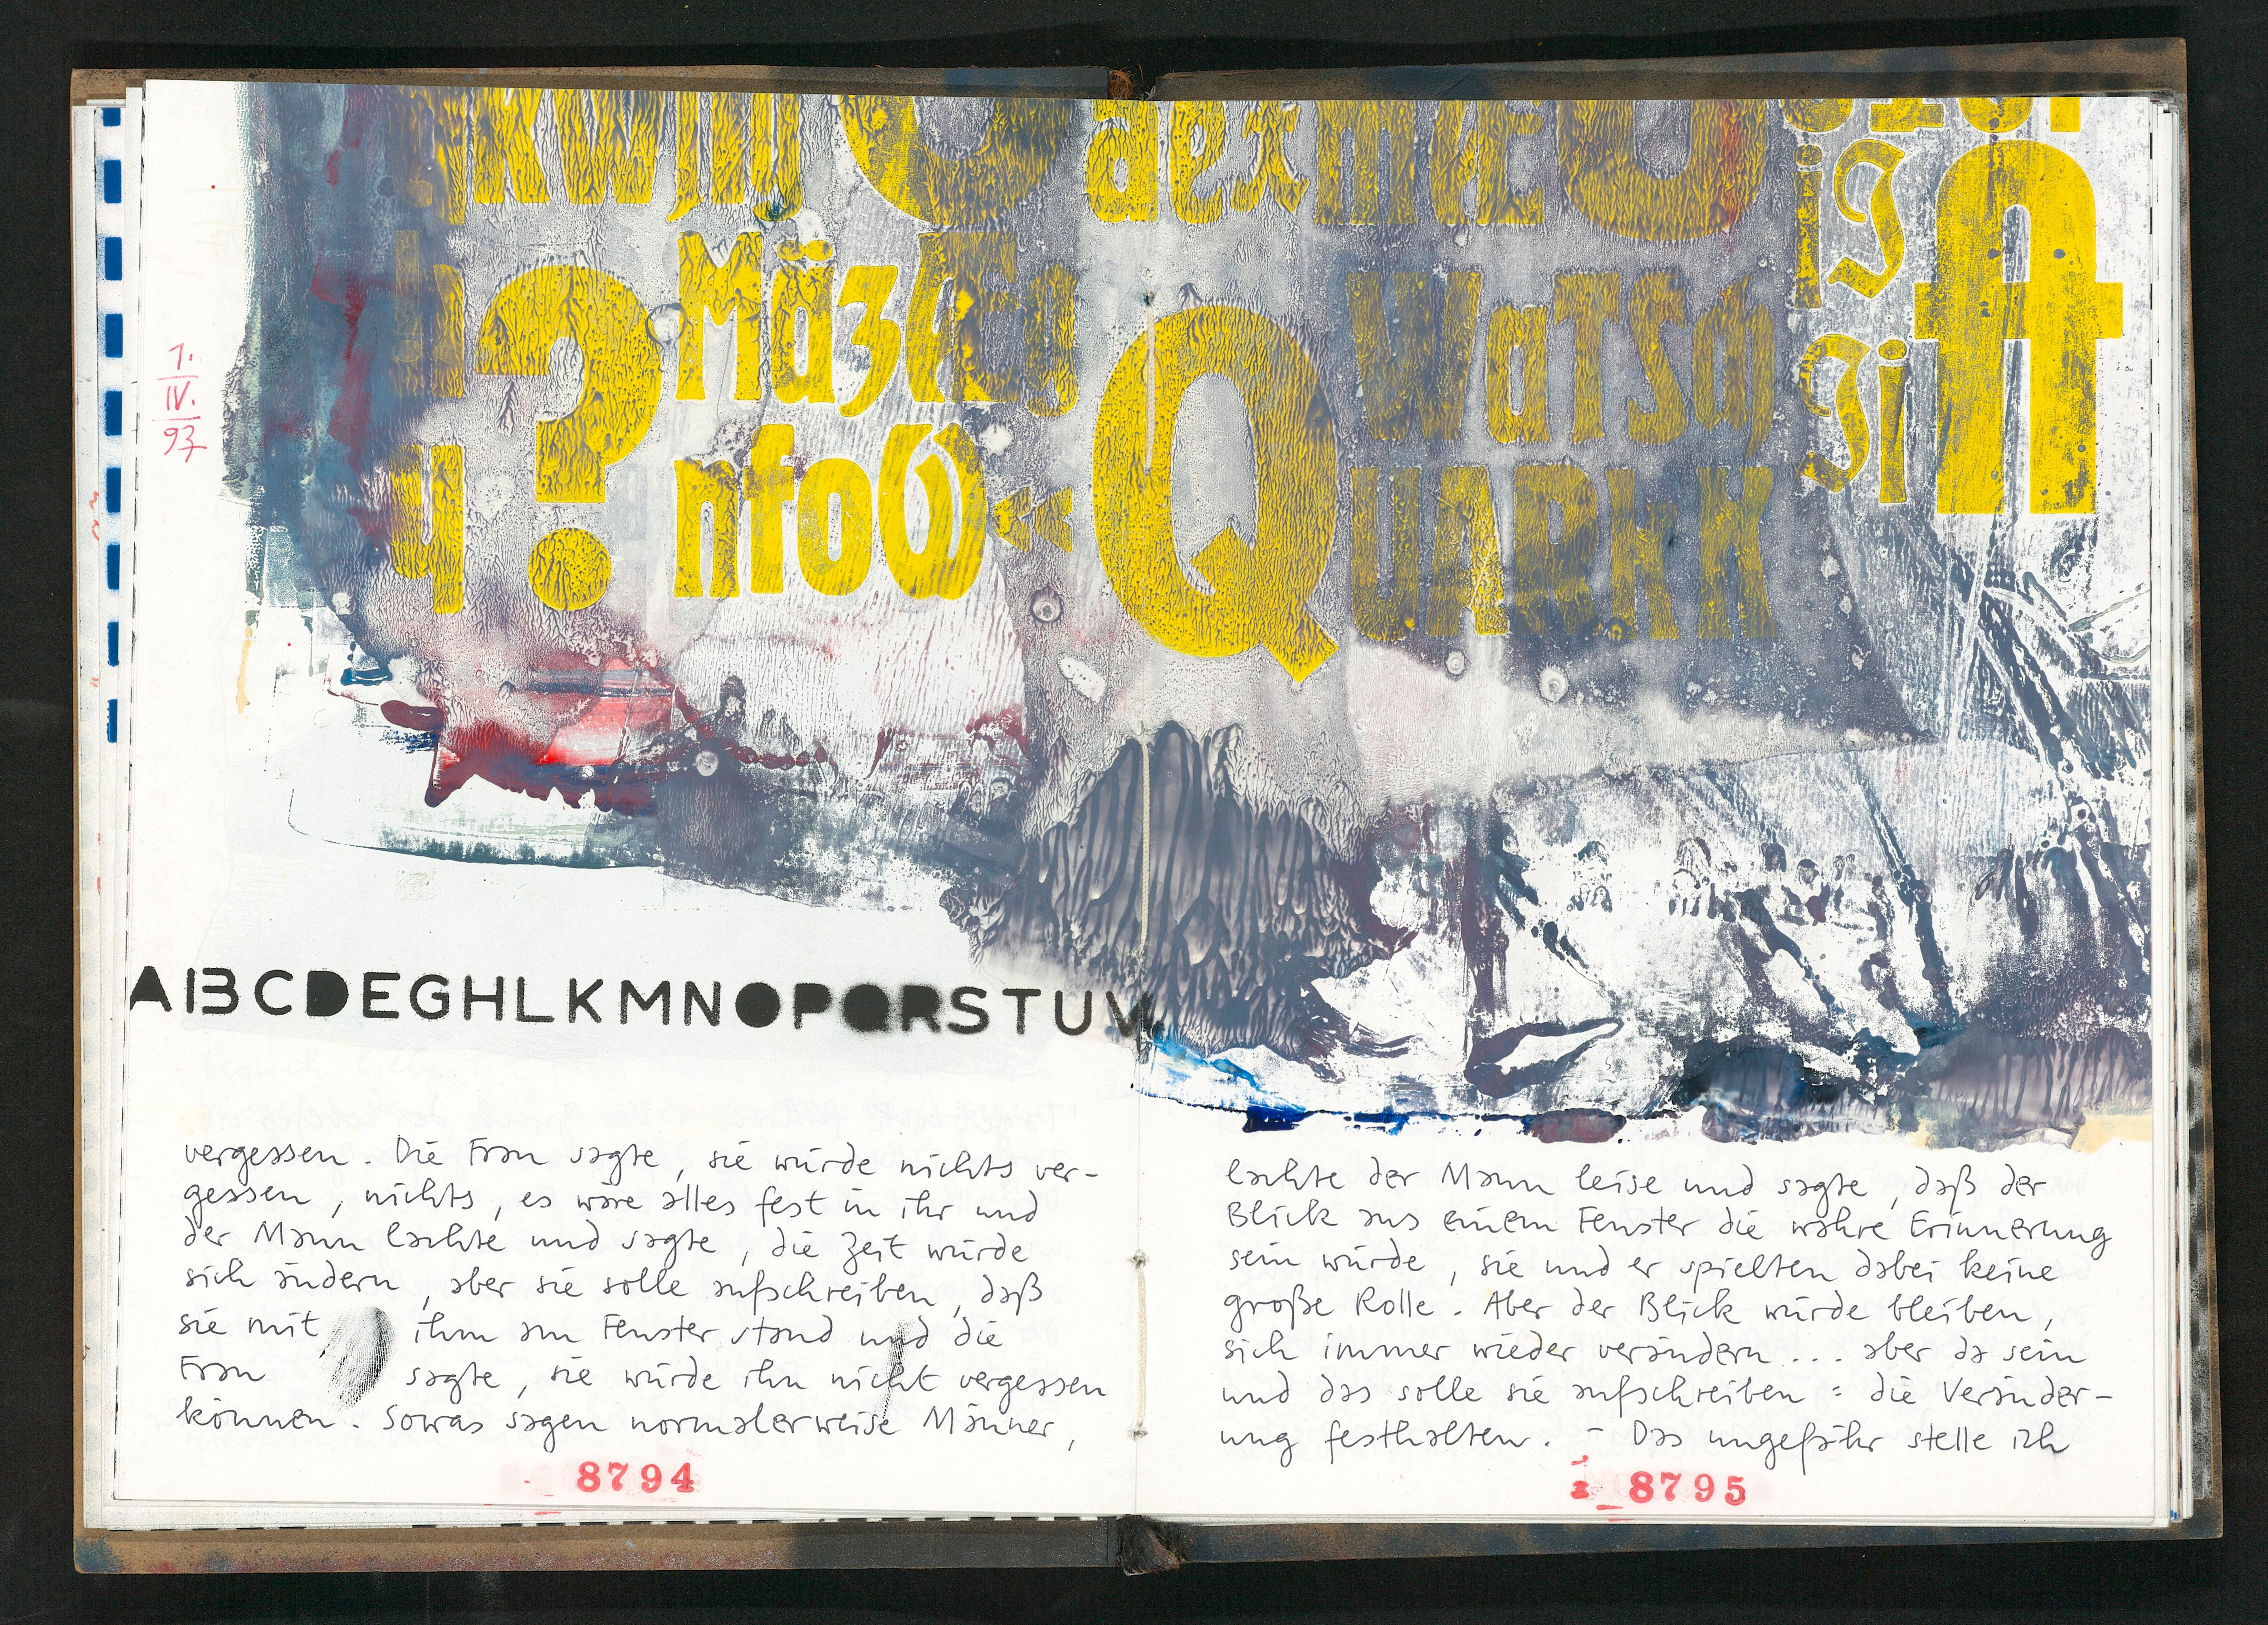 1.
IV.
97
kwm
ij
Mäza
?
nfo
Q
WaTSa
UARkK
A
ABCDEGHLKMNOPQRSTUV
vergessen. Die Frau sagte, sie würde nichts ver-
gessen, nichts, es wäre alles fest in ihr und
der Mann lachte und sagte, die Zeit würde
sich ändern, aber sie solle aufschreiben, daß
sie mit ihm am Fenster stand und die
Frau sagte, sie würde ihn nicht vergessen
können. Sowas sagen normalerweise Männer,
8794
lachte der Mann leise und sagte, daß der
Blick aus einem Fenster die wahre Erinnerung
sein würde, sie und er spielten dabei keine
große Rolle. Aber der Blick würde bleiben,
sich immer wieder verändern... aber da sein
und das solle sie aufschreiben: die Veränder-
ung festhalten. – Das ungefähr stelle ich
8795